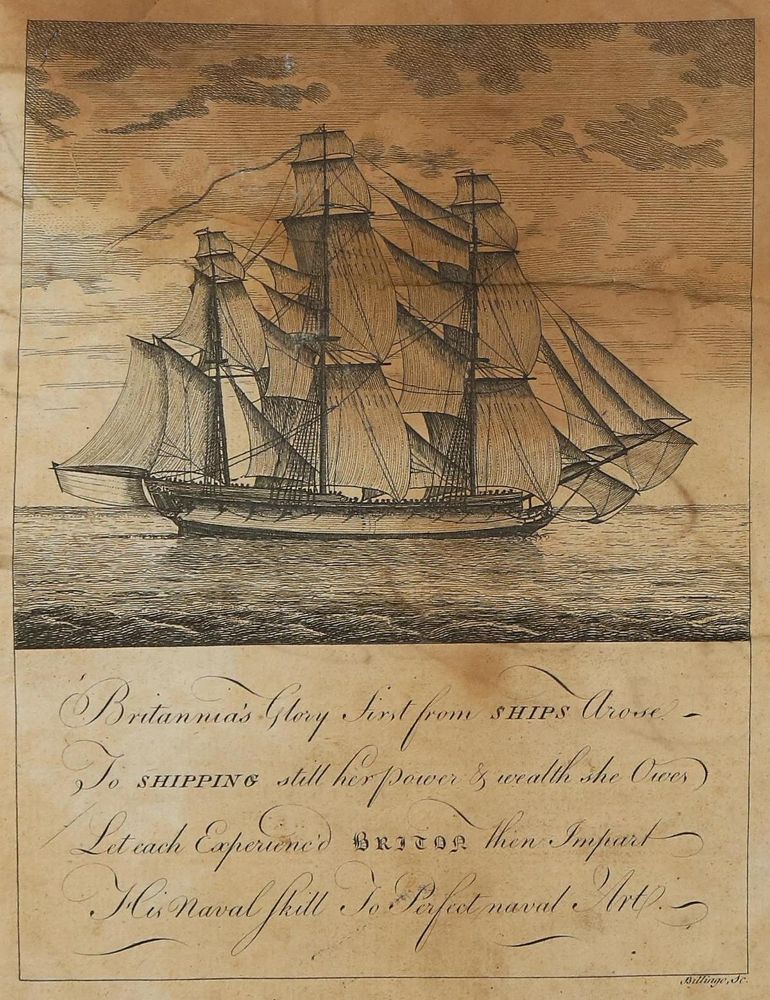 Britannia's Glory first from SHIPS Arose
To SHIPPING still her power & wealth she Owes
Let each Experienc'd BRITON then Impart
His Naval skill To Perfect naval Art.
Billinge, Sc.